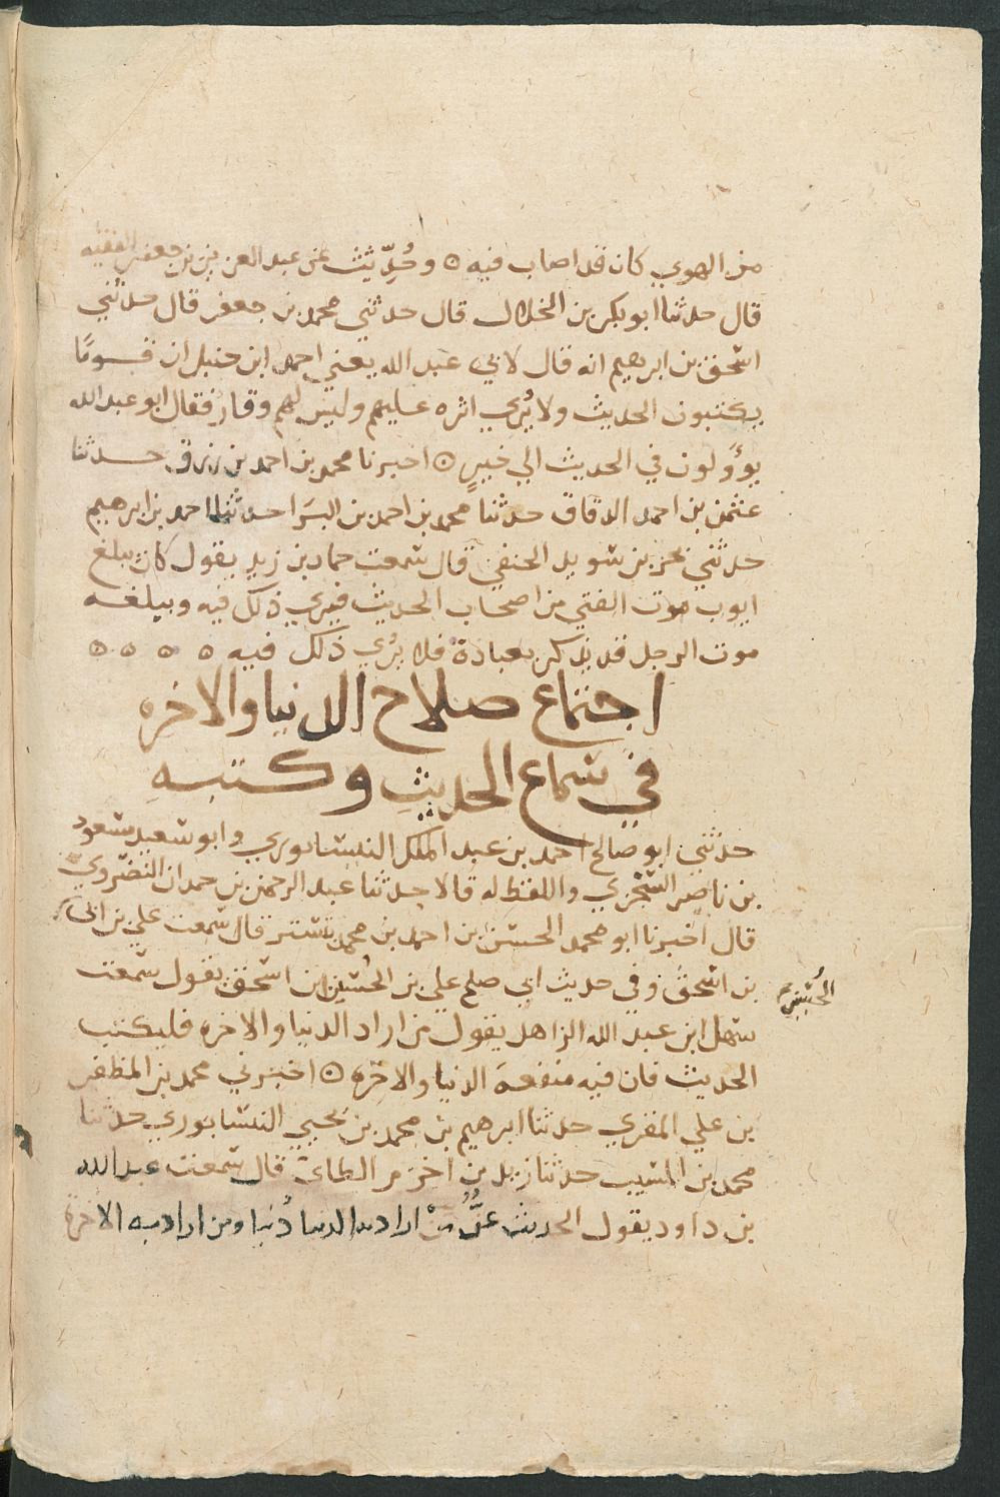 من الهوي كان قد اصاب فيه ه وحُدِّثت عن عبد العزيز بن جعفر الفقيه
قال حدثنا ابو بكر بن الخلال قال حدثني محمد بن جعفر قال حدثني
اسحق بن ابرهيم انه قال لابي عبد الله يعني احمد ابن حنبل ان قومًا
يكتبون الحديث ولا يُري اثره عليهم وليس لهم وقار فقال ابو عبد الله
يؤولون في الحديث الي خيرٍ ه اخبرنا محمد بن احمد بن رزق حدثنا
عثمن بن احمد الدقاق حدثنا محمد بن احمد بن البرا حدثنا احمد بن ابرهيم
حدثني عمر بن سويد الحنفي قال سمعت حماد بن زيد يقول كان يبلغ
ايوب موت الفتي من اصحاب الحديث فيري ذلك فيه ويبلغه
موت الرجل قد يذكر بعبادة فلا يُري ذلك فيه ه ه ه ه
اجتماع صلاح الدنيا والاخره
في سماع الحديث وكتبه
حدثني ابو صالح احمد بن عبد الملك النيسابوري وابو سعيد مسعود
بن ناصر السجزي واللفظ له قالا حدثنا عبد الرحمن بن حمدان النضروي
قال اخبرنا ابو محمد الحسن بن احمد بن محمد بتستر قال سمعت علي بن
الحسين
بن اسحق وفي حديث ابي صلح علي بن الحسين ابن اسحق يقول سمعت
سهل ابن عبد الله الزاهد يقول من اراد الدنيا والاخره فليكتب
الحديث فان فيه منفعة الدنيا والاخره ه اخبرني محمد بن المظفر
بن علي المقري حدثنا ابرهيم بن محمد بن يحيي النيسابوري حدثنا
محمد بن المسيب حدثنا زيد بن اخزم الطائ قال سمعت عبد الله
بن داود يقول الحديث عزٌّ مَنْ اراد به الدنيا دُنيا ومن اراد به الاخرة